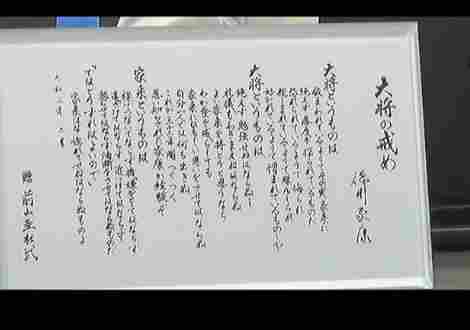 大将の戒め
徳川家康
大将というものは
敬われているようで
恐れられているようで侮られ
親しまれているようで疎んじられ
好かれているようで憎まれているものじゃ
大将というものは
絶えず勉強せねばならぬし
礼儀もわきまえねばならぬ
よい家来を持とうと思うなら
わが食を減らしても
家来にひもじい思いをさせてはならぬ
自分ひとりでは何もできぬ
これが三十二年間つくづく
思い知らされた家康が経験ぞ
家来というものは
機嫌をとってはならず
遠ざけてはならず 近づけてはならず
怒らせてはならず 油断させてはならぬものだ
ではどうすればよいので
家来は惚れさせねばならぬものよ